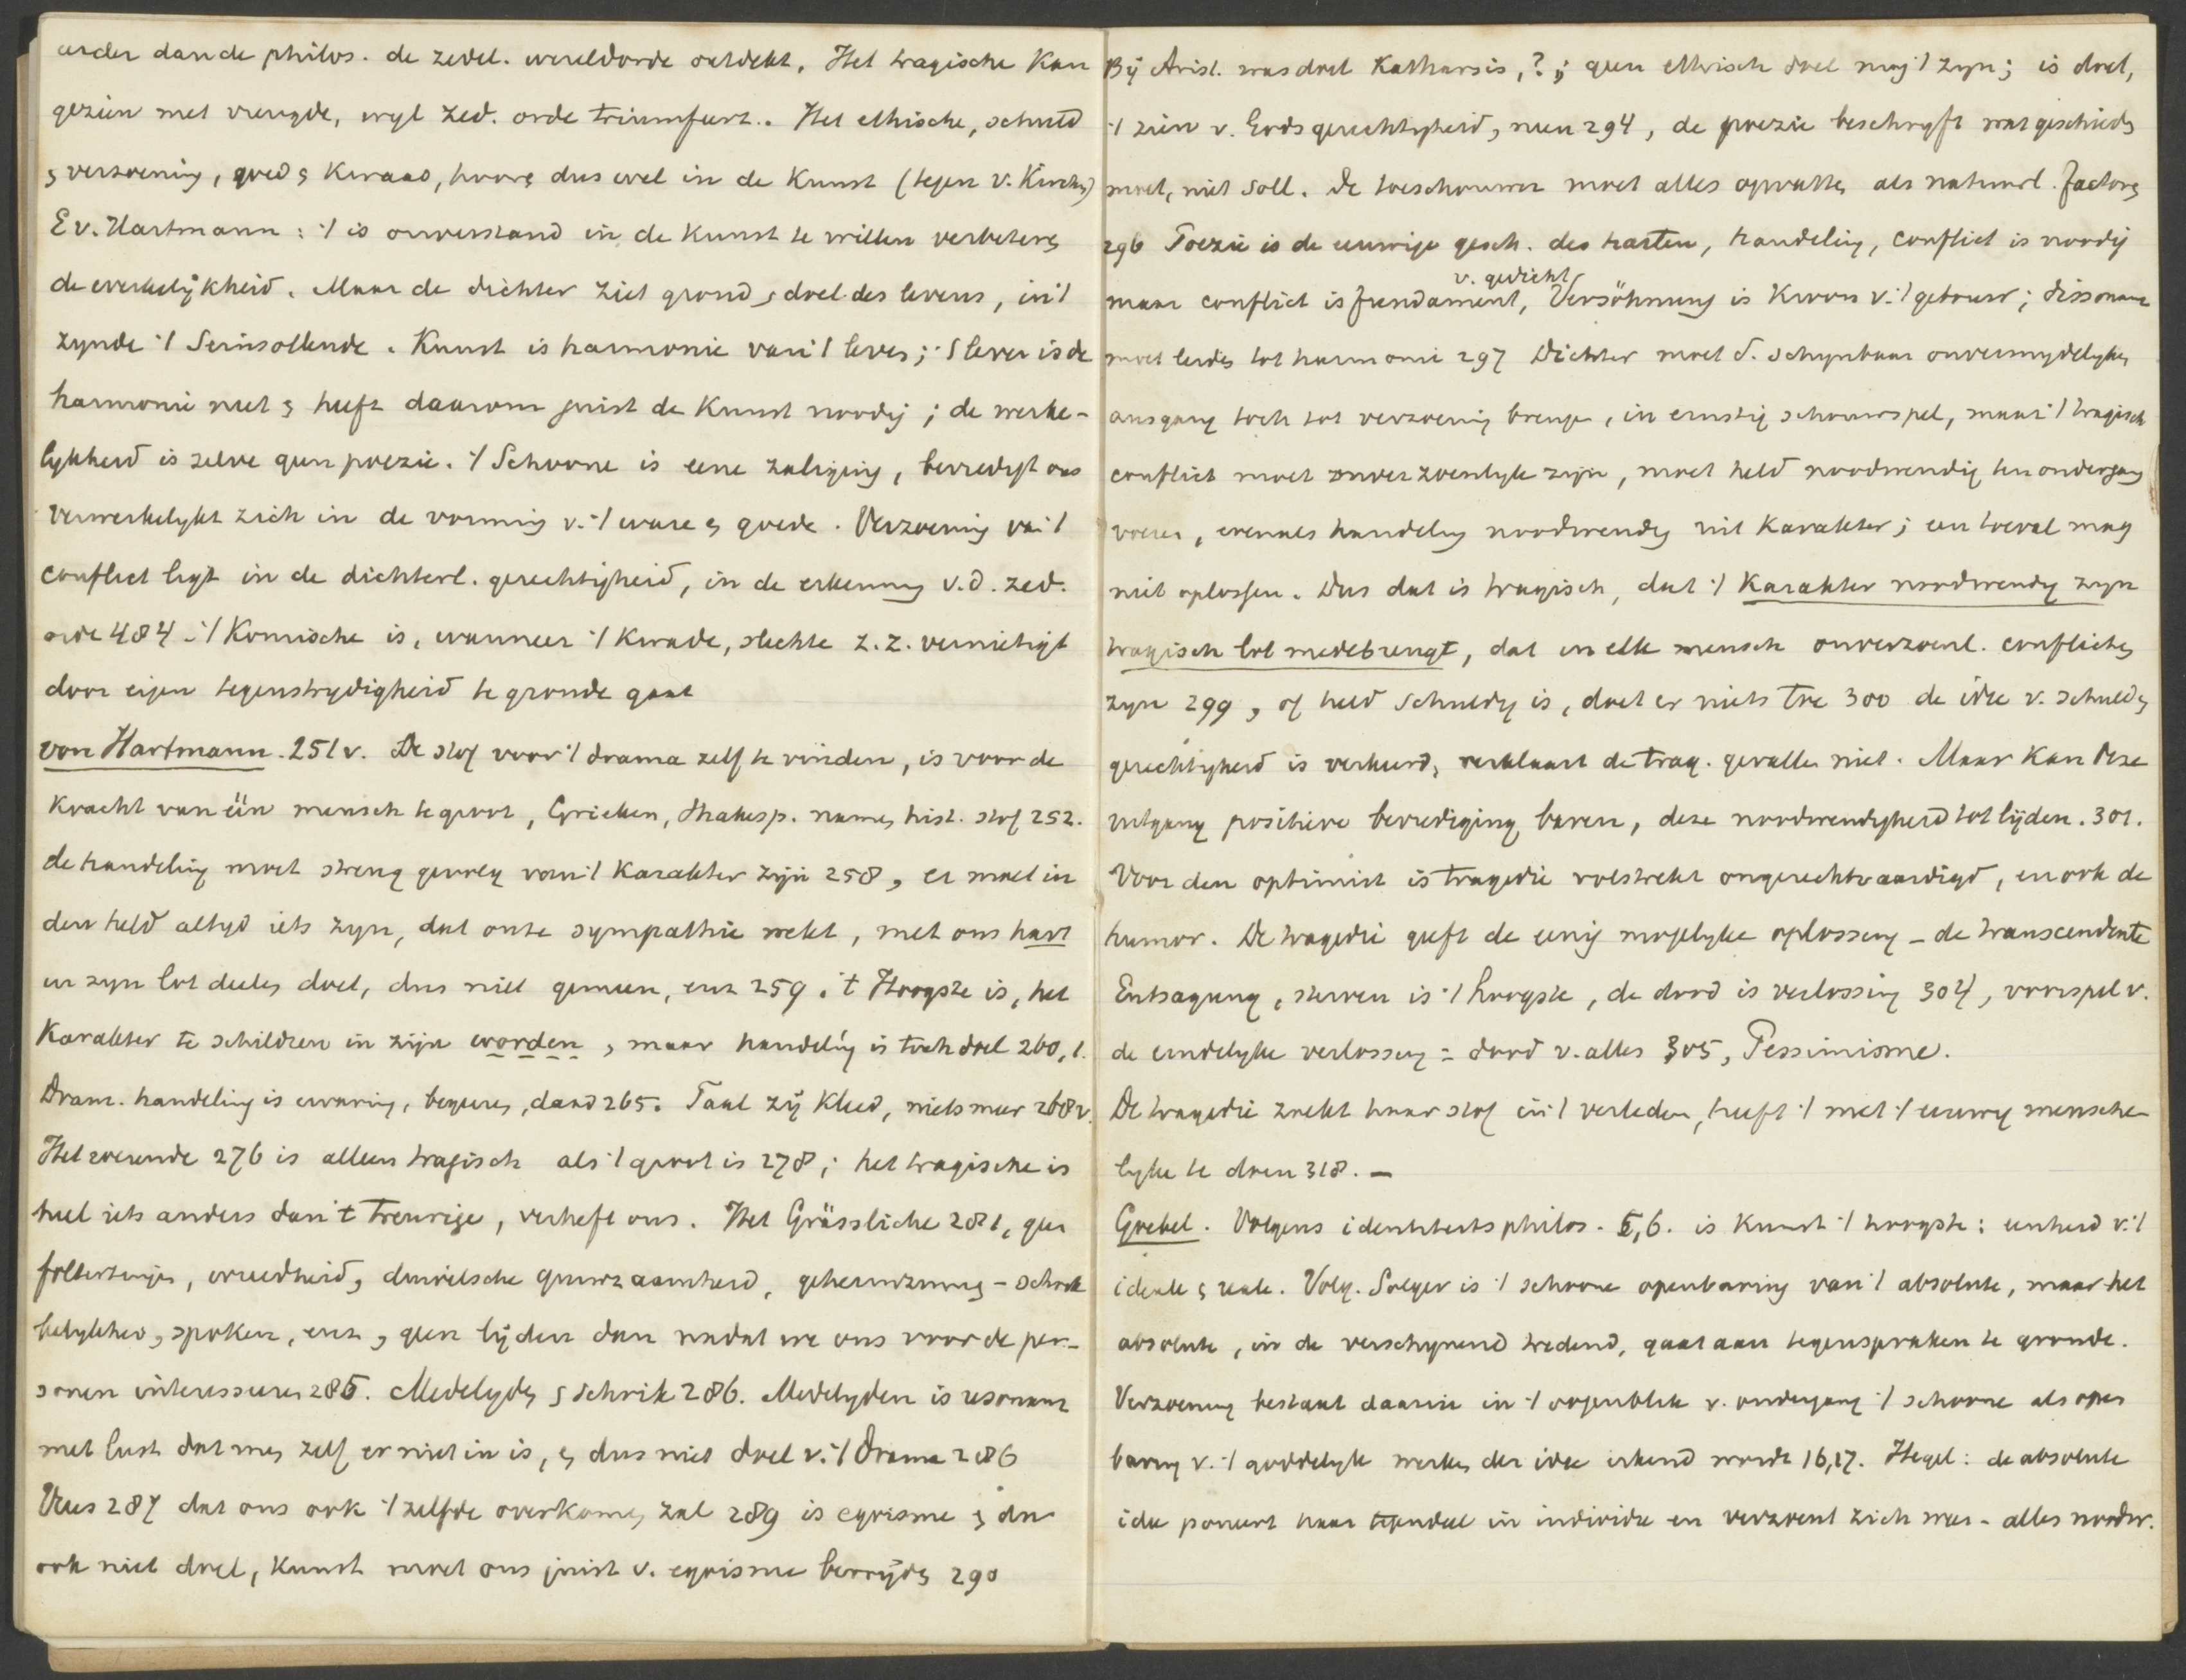 eerder dan de philos. de zedel. wereldorde ontdekt. Het tragische kan
gezien met vreugde, wyl zed. orde triumfeert. Het ethische, schuld
& verzoening, goed & kwaad, hooren dus wel in de kunst (tegen v. Kirchm)
E v. Hartmann: 't is onverstand in de kunst te willen verbeteren
de werkelijkheid. Maar de dichter ziet grond & doel des levens, in 't
zynde 't Seinsollende. Kunst is harmonie van 't leven; 't leven is de
harmonie niet & heeft daarom juist de kunst noodig; de werke-
lykheid is zelve geen poezie. 't Schoone is eene zaliging, bevredigt ons
verwerkelykt zich in de vorming v. 't ware & goede. Verzoening van 't
conflict ligt in de dichterl. gerechtigheid, in de erkenning v.d. zed.
orde 484 - 't Komische is, wanneer 't kwade, slechte z.z. vernietigt
door eigen tegenstrydigheid te gronde gaat
von Hartmann. 251 v. De stof voor 't drama zelf te vinden, is voor de
kracht van één mensch te groot, Grieken, Shakesp. namen hist. stof 252.
de handeling moet streng gevolg van 't karakter zijn 258, er moet in
den held altyd iets zyn, dat onze sympathie wekt, met ons hart
in zyn lot deelen doet, dus niet gemeen, enz 259. 't Hoogste is, het
karakter te schildren in zijn worden, maar handelíg is toch doel 260,1.
Dram. handeling is ervaring, begeeren, daad 265. Taal zij kleed, niets meer 268 v.
Het roerende 276 is alleen tragisch als 't groot is 278; het tragische is
heel iets anders dan 't treurige, verheft ons. Het Grässliche 281, geen
foltertuigen, wreedheid, duivelsche gruwzaamheid, geheimzinnig - schrik
belykheid, spoken, enz, geen lijden dan nadat we ons voor de per-
sonen interesseeren 285. Medelyden & schrik 286. Medelyden is resonanz
met lust dat men zelf er niet in is, & dus niet doel v. 't drama 286
Vrees 287 dat ons ook 't zelfde overkomen zal 289 is egoisme & dus
ook niet doel, kunst moet ons juist v. egoisme bevrijden 290
Bij Arist. was doel Katharsis, ?; geen ethisch doel mag 't zyn; is doel,
't zien v. Gods gerechtigheid, neen 294, de poezie beschryft wat geschieden
moet, niet soll. De toeschouwer moet alles opvatten als natuurl. factoren
296 Poezie is de eeuwige gesch. des harten, handeling, conflict is noodig
maar conflict is fundament v. gedicht, Versöhnung is kroon v. 't gebouw; dissonans
moet leiden tot harmonie 297 Dichter moet d. schynbaar onvermydelyken
ausgang toch tot verzoening brengen, in ernstig schouwspel, maar 't tragisch
conflict moet onverzoenlyk zijn, moet held noodwendig ten ondergang
voeren, evenals handeling noodwendig uit karakter; een toeval mag
niet oplossen. Dus dat is tragisch, dat 't karakter noodwendig zyn
tragisch lot medebrengt, dat in elk mensch onverzoenl. conflicten
zyn 299, of held schuldig is, doet er niets toe 300 de idee v. schuld &
gerechtigheid is verkeerd, verklaart de trag. gevallen niet. Maar kan deze
uitgang positieve bevrediging baren, deze noodwendigheid tot lijden. 301.
Voor den optimist is tragedie volstrekt ongerechtvaardigd, en ook de
humor. De tragedie geeft de eenig mogelyke oplossing - de transcendente
Entsagung, sterven is 't hoogste, de dood is verlossing 304, voorspel v.
de eindelyke verlossing = dood v. alles 305, Pessimisme.
De tragedie zoekt haar stof in 't verleden, heeft 't met 't eeuwig mensche-
lyke te doen 318. -
Goebel. Volgens identiteitsphilos. 5,6. is kunst 't hoogste: eenheid v. 't
ideale & reale. Volg. Solger is 't schoone openbaring van 't absolute, maar het
absolute, in de verschynend tredend, gaat aan tegenspraken te gronde.
Verzoening bestaat daarin in 't oogenblik v. ondergang 't schoone als open
baring v. 't goddelyk werken der idee erkend wordt 16,17. Hegel: de absolute
idee poneert haar tegendeel in individu en verzoent zich weer - alles noodw.